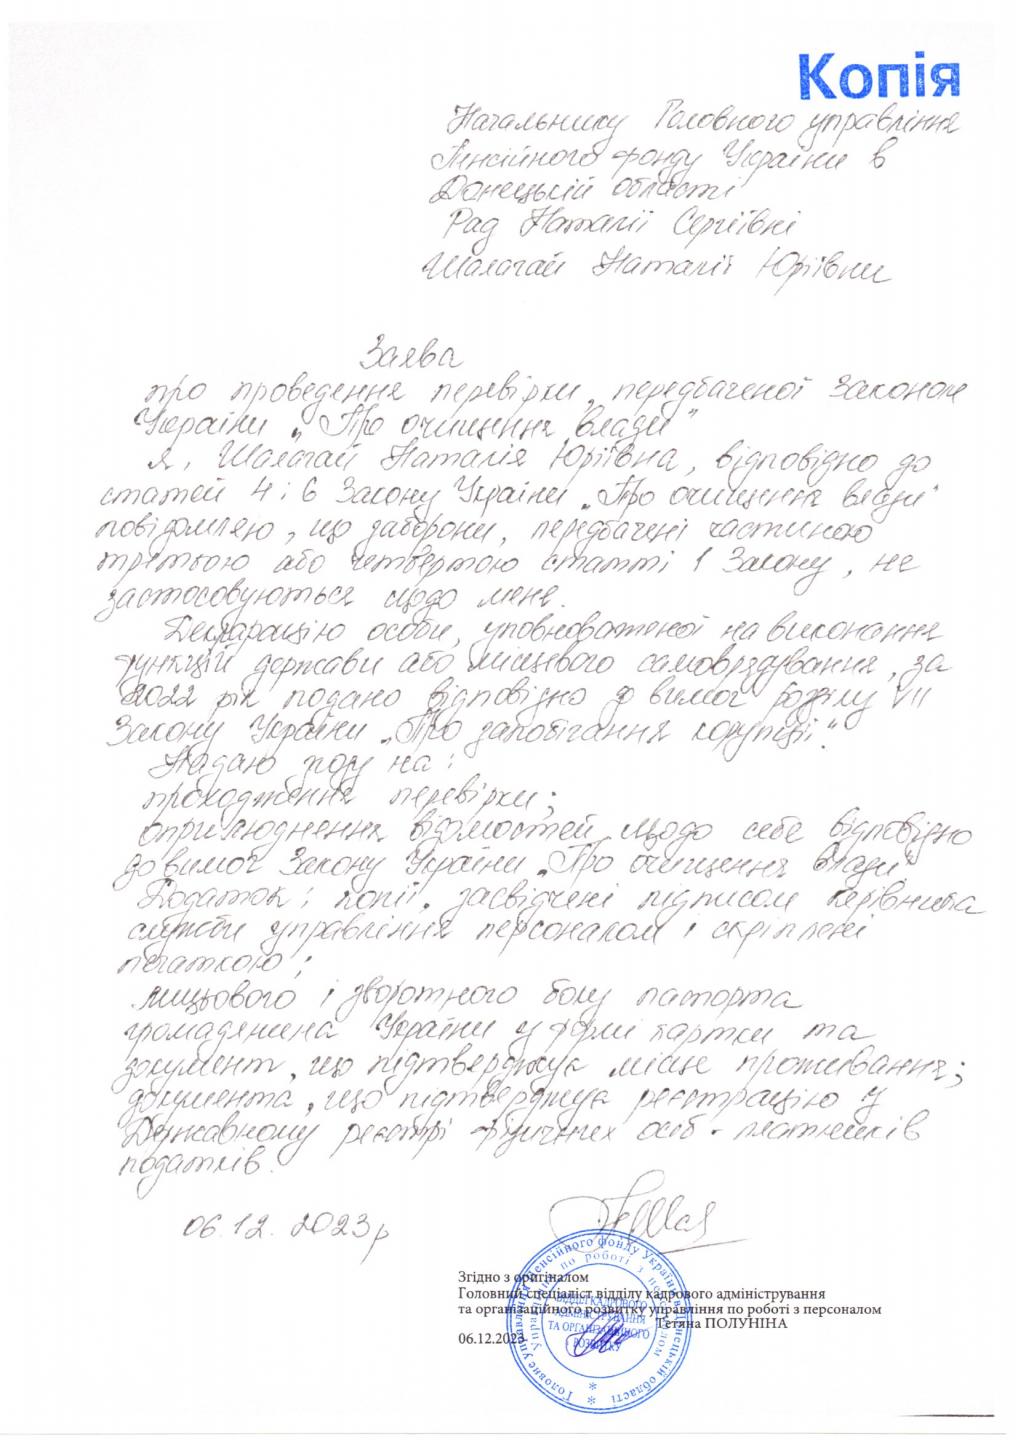 Копія
Начальнику Головного управління
Пенсійного фонду України в
Донецькій області
Рад Наталії Сергіївні
Шалагай Наталії Юріївни
Заява
про проведення перевірки, передбаченої Законом
України „Про очищення влади"
Я, Шалагай Наталія Юріївна, відповідно до
статей 4 і 6 Закону України „Про очищення влади"
повідомляю, що заборони, передбачені частиною
третьою або четвертою статті 1 Закону, не
застосовуються щодо мене.
Декларацію особи, уповноваженої на виконання
функцій держави або місцевого самоврядування, за
2022 рік подано відповідно до вимог розділу VII
Закону України „Про запобігання корупції".
Надаю згоду на:
проходження перевірки;
оприлюднення відомостей щодо себе відповідно
до вимог Закону України „Про очищення влади"
Додаток: копії, засвідчені підписом керівника
служби управління персоналом і скріплені
печаткою:
лицьового і зворотного боку паспорта
громадянина України у формі картки та
документ, що підтверджує місце проживання;
документа, що підтверджує реєстрацію у
Державному реєстрі фізичних осіб - платників
податків.
06.12.2023р
Згідно з оригіналом
Головний спеціаліст відділу кадрового адміністрування
та організаційного розвитку управління по роботі з персоналом
Тетяна ПОЛУНІНА
06.12.2023
Головне управління Пенсійного фонду України в Донецькій області
Управління по роботі з персоналом
ВІДДІЛ КАДРОВОГО
АДМІНІСТРУВАННЯ
ТА ОРГАНІЗАЦІЙНОГО
РОЗВИТКУ